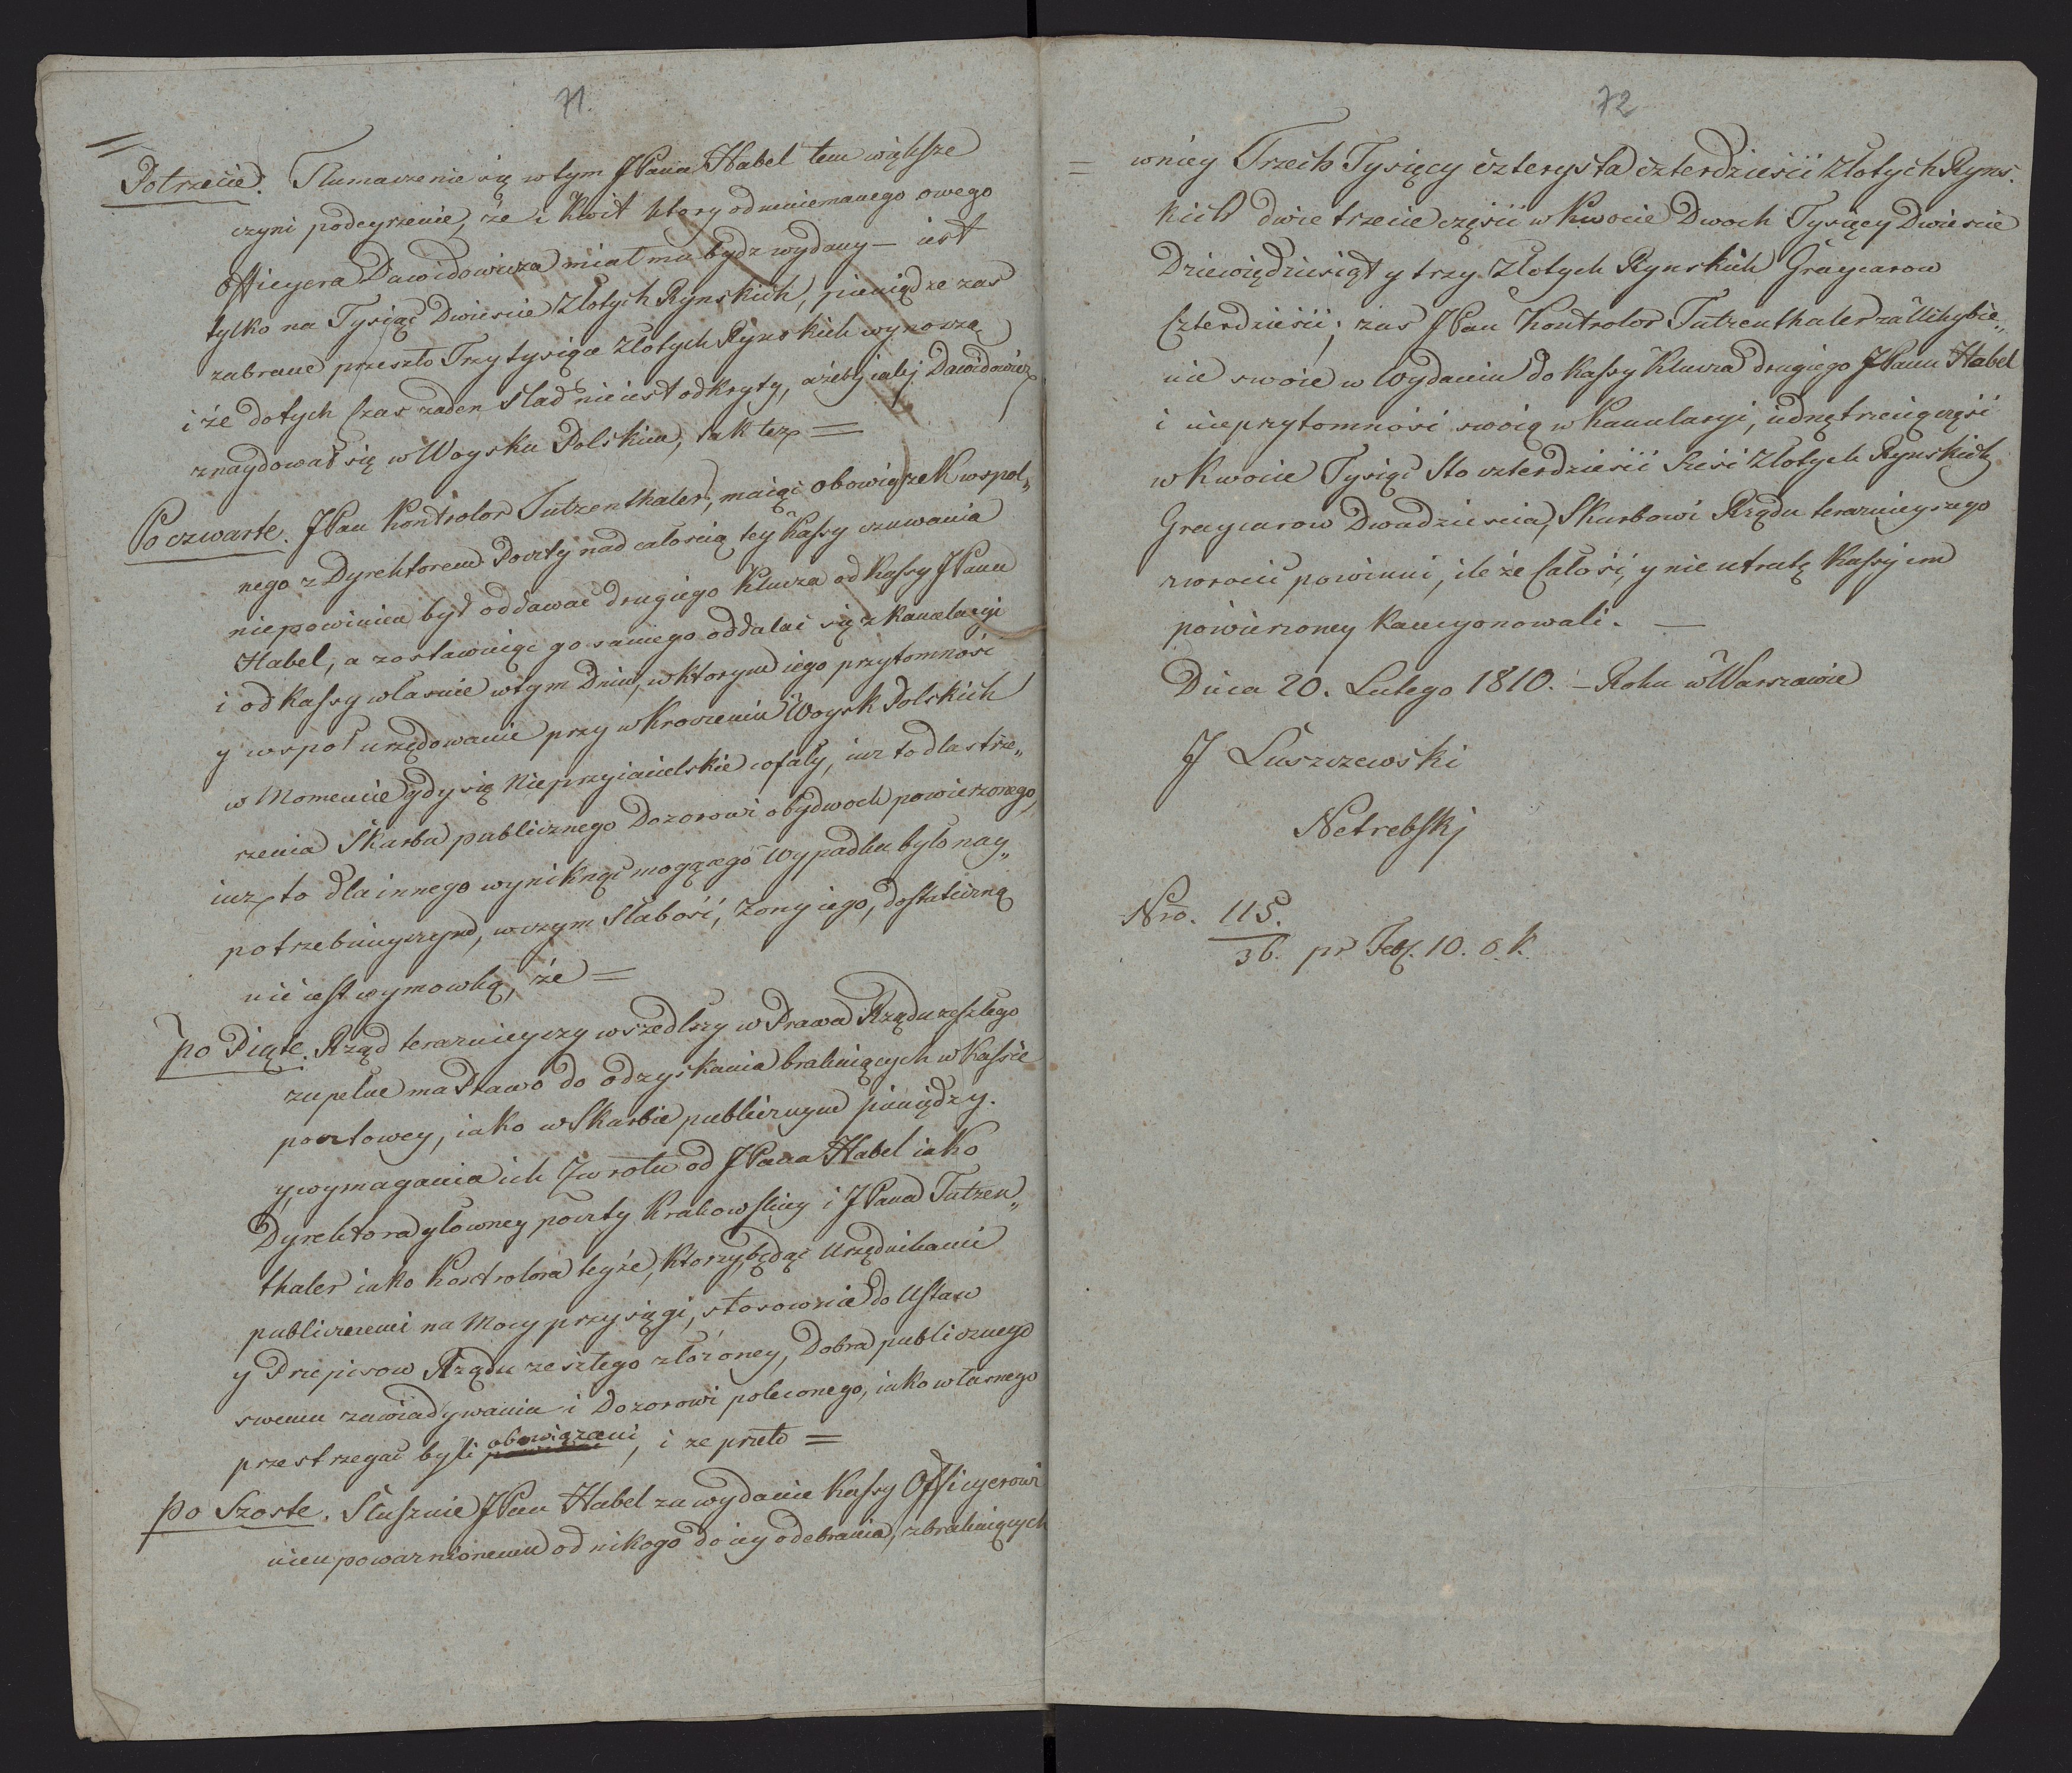 71.
Potrzecie. Tłumaczenie się w tym JPana Habel tem większe
czyni podeyrzenie, że i kwit ktory od mniemanego owego
Officyera Dawidowicza miał mu bydz wydany — iest
tylko na Tysiąc Dwieście Złotych Rynskich, pieniądze zas
zabrane przeszło Trzy tysiące Złotych Rynskich wynoszą
i że dotych Czas żaden Slad nie iest odkryty, ażeby iakij Dawidowicz
znaydował się w Woysku Polskim, iak też =
Po czwarte. JPan Kontrolor Tutzenthaler, maiąc obowiązek wspol„
nego z Dyrektorem Poczty nad całością tey Kassy czuwania
niepowinien był oddawać drugiego Klucza od Kassy JPanu
Habel, a zostawiwszy go samego oddalać się z kancelaryi
i od Kassy własnie w tym Dniu, w ktorym iego przytomność
y wspoł urzędowanie przy wkroczeniu Woysk Polskich
w Momencie gdy się Nieprzyiacielskie cofały, iuż to dla strze„
żenia Skarbu publicznego Dozorowi obydwoch powierzonego,
iuż to dla innego wyniknąć mogącego Wypadku było nay„
potrzebnieyszym, w czym Słabość, żony iego, dostateczną
nie iest wymowką, że =
po Piąte. Rząd teraznieyszy wszedłszy w Prawa Rządu zeszłego
zupełne ma Prawo do odzyskania brakuiących w Kassie
pocztowey, iako w Skarbie publicznym pieniędzy.
y wymagania ich Zwrotu od JPana Habel iako
Dyrektora głowney poczty Krakowskiey i JPana Tutzen„
thaler iako Kontrolora teyże, ktorzy będąc Urzędnikami
publicznemi na Mocy przysięgi, stosownie do Ustaw
y Przepisow Rządu zeszłego złożoney, Dobra publicznego
swemu zawiadywaniu i Dozorowi poleconego, iako własnego
przestrzegać byli obowiązani, i że przeto =
po Szoste. Słusznie JPan Habel za wydanie Kassy Officyerowi
nieupoważnionemu od nikogo do iey odebrania, z brakuiących
72
= w niey Trzech Tysięcy czterysta czterdzieści Złotych Ryns.
kich dwie trzecie części w Kwocie Dwoch Tysięcy Dwieście
Dziewiędziesiąt y trzy Złotych Rynskich Graycarow
Czterdzieści; zas JPan Kontrolor Tutzenthaler za Uchybie„
nie swoie w Wydaniu do Kassy Klucza drugiego JPanu Habel
i nieprzytomności swoię w Kancelaryi, iednę trzecią część
w Kwocie Tysiąc Sto czterdzieści Sześć Złotych Rynskich
Graycarow Dwadzieścia, Skarbowi Rządu teraznieyszego
zwrocić powinni, ile że Całość, y nie utratę Kassy im
powierzoney kaucyonowali. —
Dnia 20. Lutego 1810. — Roku w Warszawie
J Łuszczewski
Netrebskj
Nro. 115.
36. pr Feb. 10. 6. k.